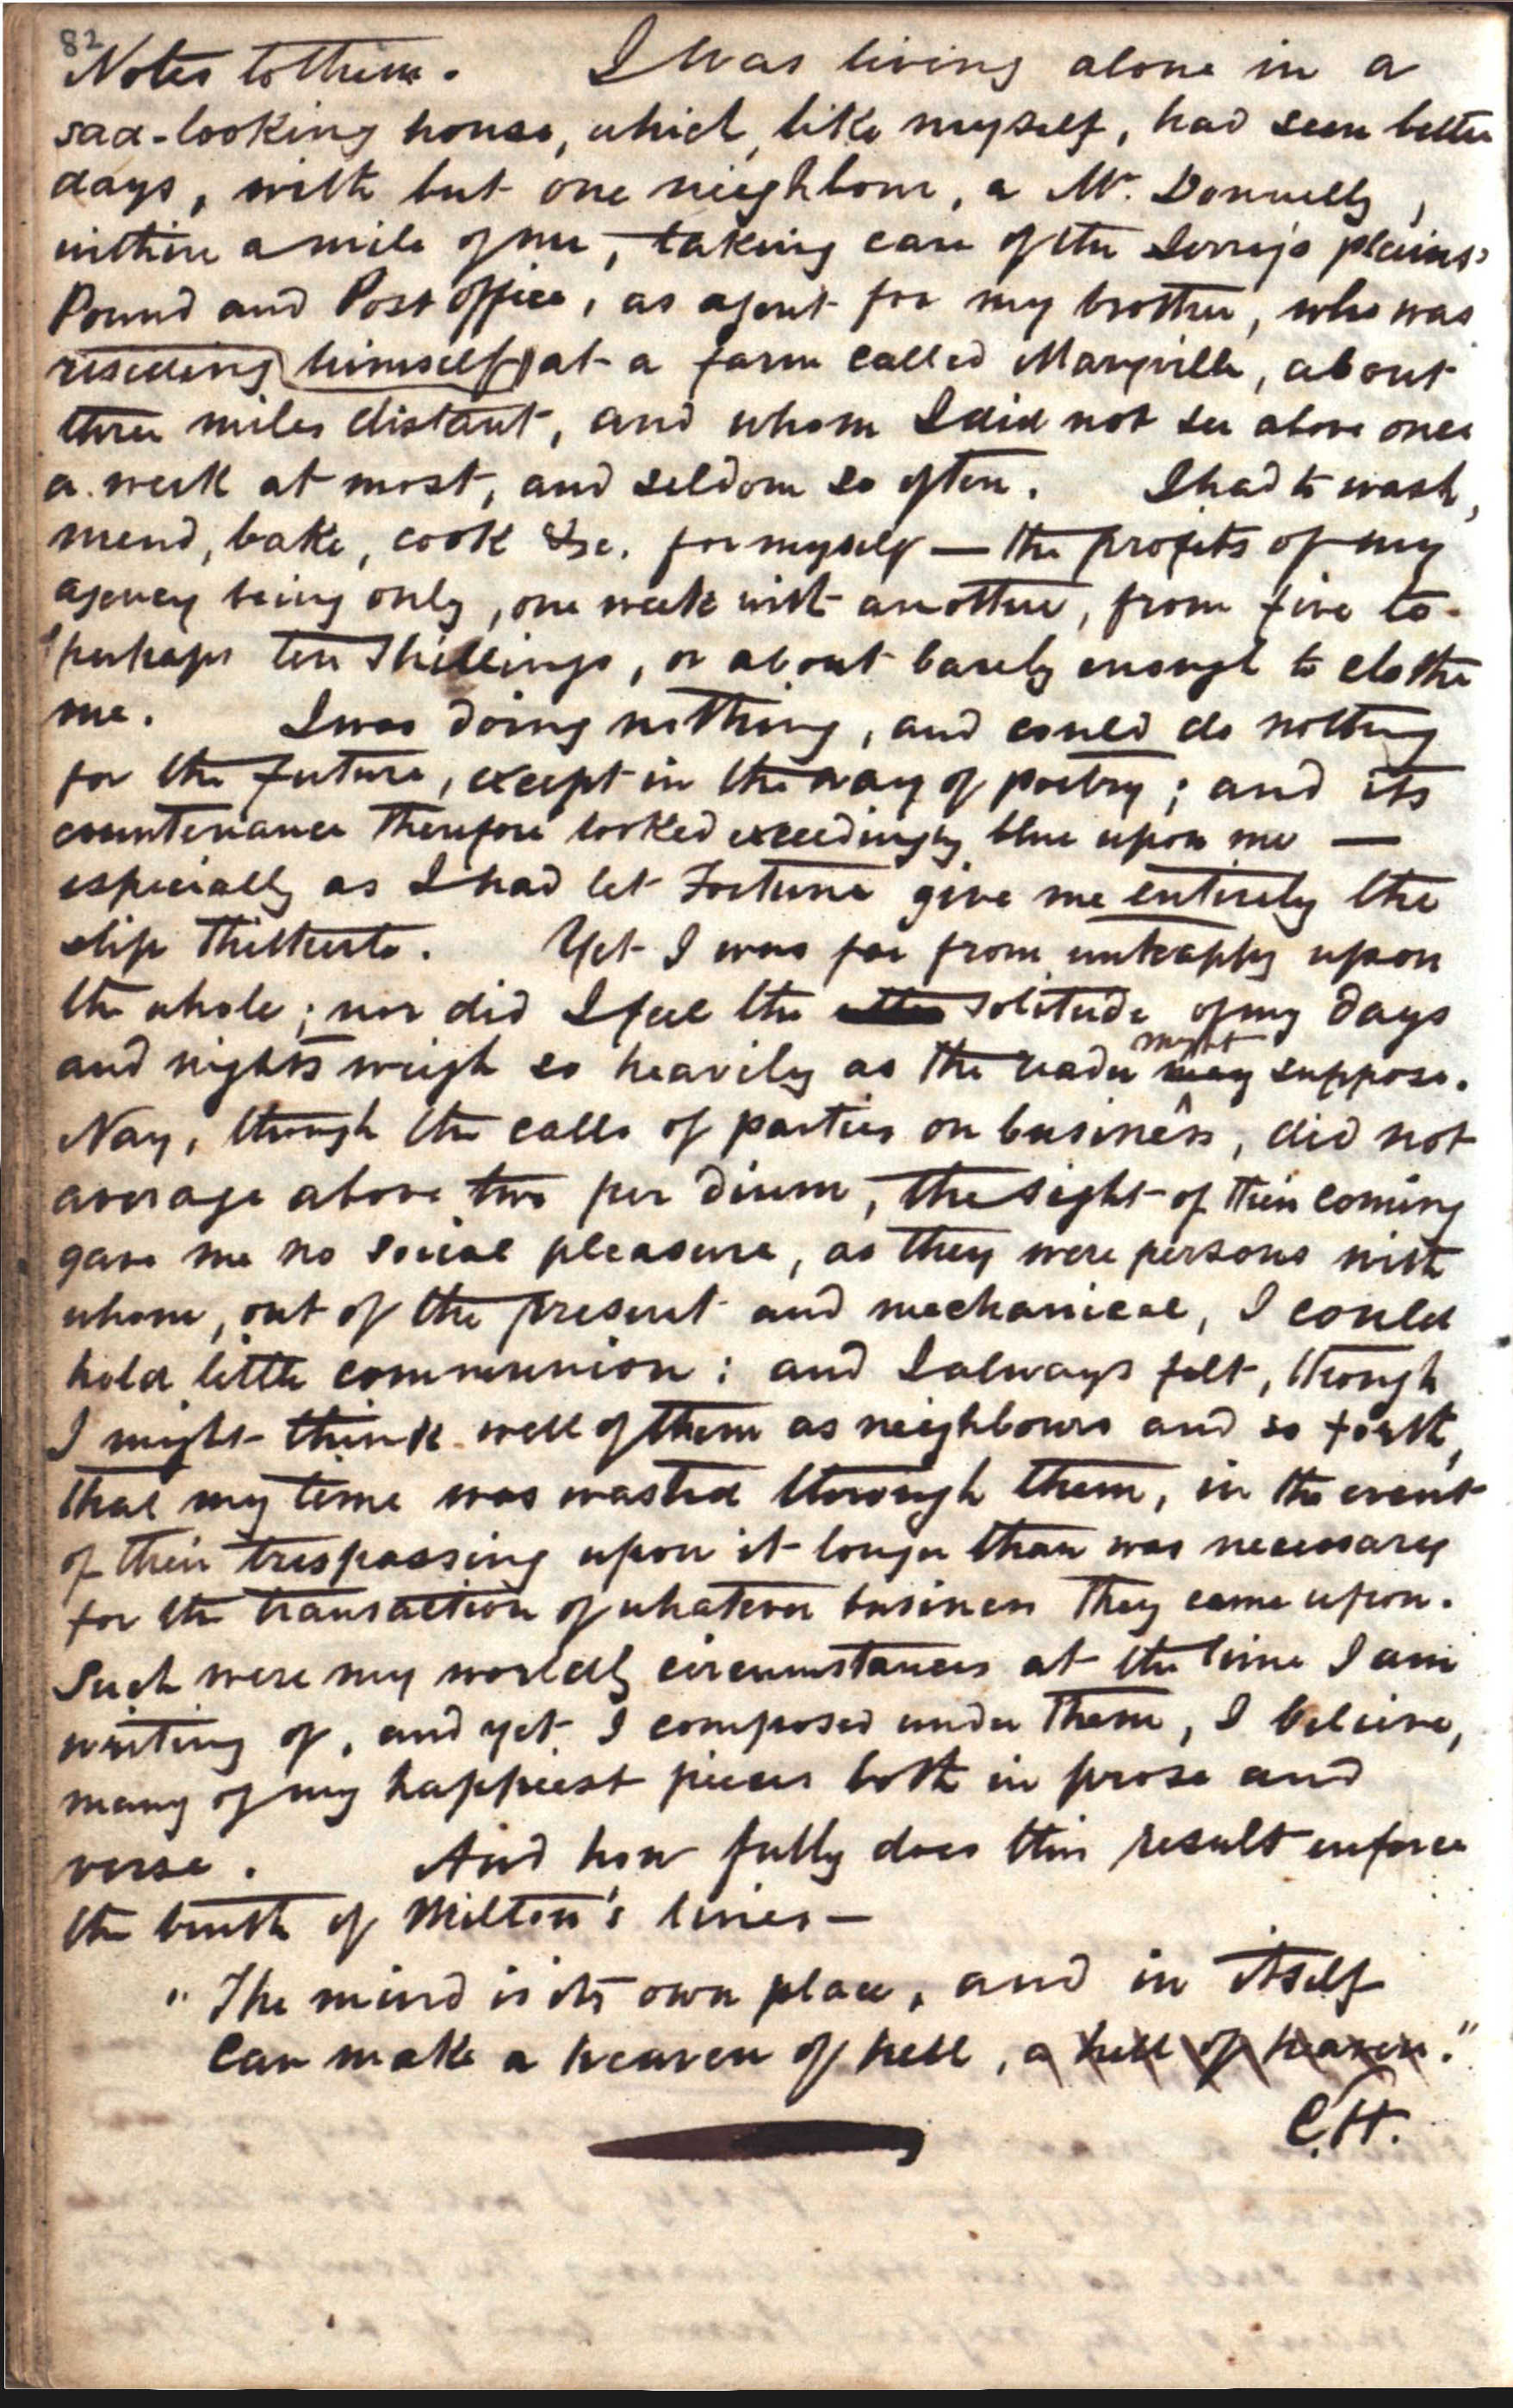 82
Notes to them. I was living alone in a
sad-looking house, which, like myself, had seen better
days, with but one nieghbour, a Mr. Donnelly,
within a mile of me, taking care of the Jerry's plains
Pound and Post office, as agent for my brother, who was
resideing (himself) at a farm called Maryville, about
three miles distant, and whom I did not see above once
a week at most, and seldom so often. I had to wash,
mend, bake, cook &c. for myself — the profits of my
agency being only, one week with another, from five to
perhaps ten Shillings, or about barely enough to clothe
me. I was doing nothing, and could do nothing
for the future, except in the way of poetry; and its
countenance therefore looked exceedingly blue upon me —
especially as I had let Fortune give me entirely the
slip thitherto. Yet I was far from unhappy upon
the whole; nor did I feel the solitude of my days
might
and nights weigh so heavily as the reader may suppose.
Nay, though the calls of parties on business, did not
average above two per dium, the sight of their coming
gave me no social pleasure, as they were persons with
whom, out of the present and mechanical, I could
hold little communion: and I always felt, though
I might think well of them as neighbours and so forth,
that my time was wasted through them, in the event
of their trespassing upon it longer than was necessary
for the transaction of whatever business they came upon.
Such were my worldly circumstances at the time I am
writing of, and yet I composed under them, I believe,
many of my happiest pieces both in prose and
verse. And how fully does this result enforce
the truth of Milton's lines—
"The mind is its own place, and in itself
Can make a heaven of hell, a hell of heaven."
C.H.